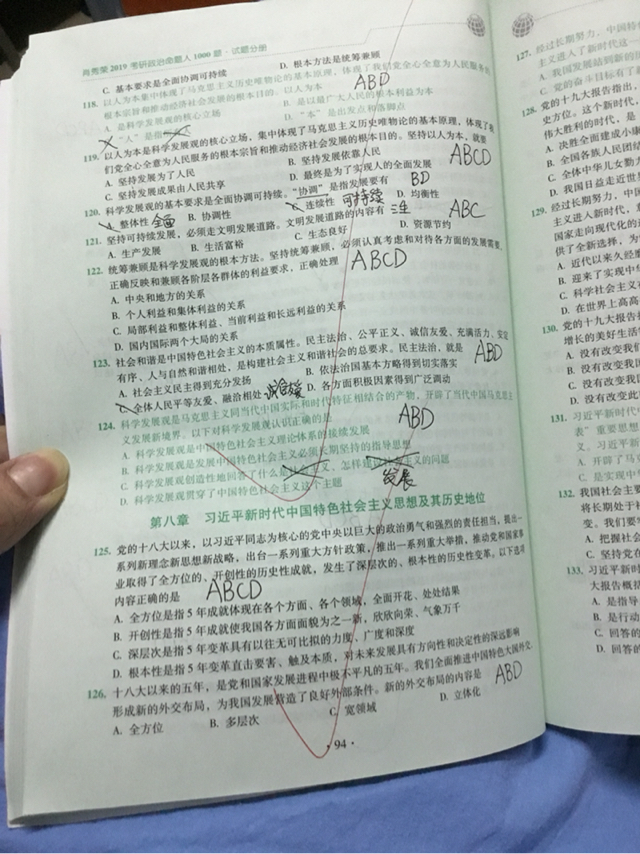 肖秀荣2019考研政治命题人1000题·试题分册
C. 基本要求是全面协调可持续
D. 根本方法是统筹兼顾
118. 以人为本集中体现了马克思主义历史唯物论的基本原理，体现了我们党全心全意为人民服务的
根本宗旨和推动经济社会发展的根本目的。以人为本
ABD
A. 是科学发展观的核心立场
B. 是以最广大人民的根本利益为本
D. “本”是出发点和落脚点
119. 以人为本是科学发展观的核心立场，集中体现了马克思主义历史唯物论的基本原理，体现了我
们党全心全意为人民服务的根本宗旨和推动经济社会发展的根本目的。坚持以人为本，就要
ABCD
A. 坚持发展为了人民
B. 坚持发展依靠人民
C. 坚持发展成果由人民共享
D. 最终是为了实现人的全面发展
120. 科学发展观的基本要求是全面协调可持续。“协调”是指发展要有
BD
A. 整体性 全面
B. 协调性
C. 连续性 可持续
D. 均衡性
121. 坚持可持续发展，必须走文明发展道路。文明发展道路的内容有
三生
ABC
A. 生产发展
B. 生活富裕
C. 生态良好
D. 资源节约
122. 统筹兼顾是科学发展观的根本方法。坚持统筹兼顾，必须认真考虑和对待各方面的发展需要，
正确反映和兼顾各阶层各群体的利益要求，正确处理
ABCD
A. 中央和地方的关系
B. 个人利益和集体利益的关系
C. 局部利益和整体利益、当前利益和长远利益的关系
D. 国内国际两个大局的关系
123. 社会和谐是中国特色社会主义的本质属性。民主法治、公平正义、诚信友爱、充满活力、安定
有序、人与自然和谐相处，是构建社会主义和谐社会的总要求。民主法治，就是
ABD
A. 社会主义民主得到充分发扬
B. 依法治国基本方略得到切实落实
C. 全体人民平等友爱、融洽相处 诚信友爱
D. 各方面积极因素得到广泛调动
124. 科学发展观是马克思主义同当代中国实际和时代特征相结合的产物，开辟了当代中国马克思主
义发展新境界。以下对科学发展观认识正确的是
ABD
A. 科学发展观是中国特色社会主义理论体系的接续发展
B. 科学发展观是发展中国特色社会主义必须长期坚持的指导思想
C. 科学发展观创造性地回答了什么是社会主义、怎样建设社会主义的问题
发展
D. 科学发展观贯穿了中国特色社会主义这个主题
第八章 习近平新时代中国特色社会主义思想及其历史地位
125. 党的十八大以来，以习近平同志为核心的党中央以巨大的政治勇气和强烈的责任担当，提出一
系列新理念新思想新战略，出台一系列重大方针政策，推出一系列重大举措，推动党和国家事
业取得了全方位的、开创性的历史性成就，发生了深层次的、根本性的历史性变革。以下选项
内容正确的是
ABCD
A. 全方位是指5年成就体现在各个方面、各个领域，全面开花、处处结果
B. 开创性是指5年成就使我国各方面面貌为之一新，欣欣向荣、气象万千
C. 深层次是指5年变革具有以往无可比拟的力度、广度和深度
D. 根本性是指5年变革直击要害、触及本质，对未来发展具有方向性和决定性的深远影响
126. 十八大以来的五年，是党和国家发展进程中极不平凡的五年。我们全面推进中国特色大国外交，
形成新的外交布局，为我国发展营造了良好外部条件。新的外交布局的内容是
ABD
A. 全方位
B. 多层次
C. 宽领域
D. 立体化
·94·
127. 经过长期努力，中国特
主义进入了新时代这一
A. 我国发展站到新的历
C. 党的奋斗目标有了
128. 党的十九大报告指出，
史方位。这个新时代，
伟大胜利的时代，是
A. 决胜全面建成小康
B. 全国各族人民团结
C. 全体中华儿女勠力
D. 我国日益走近世界
129. 经过长期努力，中国
主义进入新时代，意
国家走向现代化的途
供了全新选择，为
A. 近代以来久经磨
B. 迎来了实现中华
C. 科学社会主义在
D. 在世界上高高
130. 党的十九大报告指
增长的美好生活
A. 没有改变我们
B. 没有改变我国
C. 没有改变我国
D. 没有改变我
131. 习近平新时代中
表”重要思想、
义、习近平新
A. 开辟了马克
C. 是实现中
132. 我国社会主要
将长期处于
变。我们要
A. 把握社会
C. 坚持党在
133. 习近平新时
大报告概括
A. 是指导
B. 是行动
C. 回答的
D. 回答了